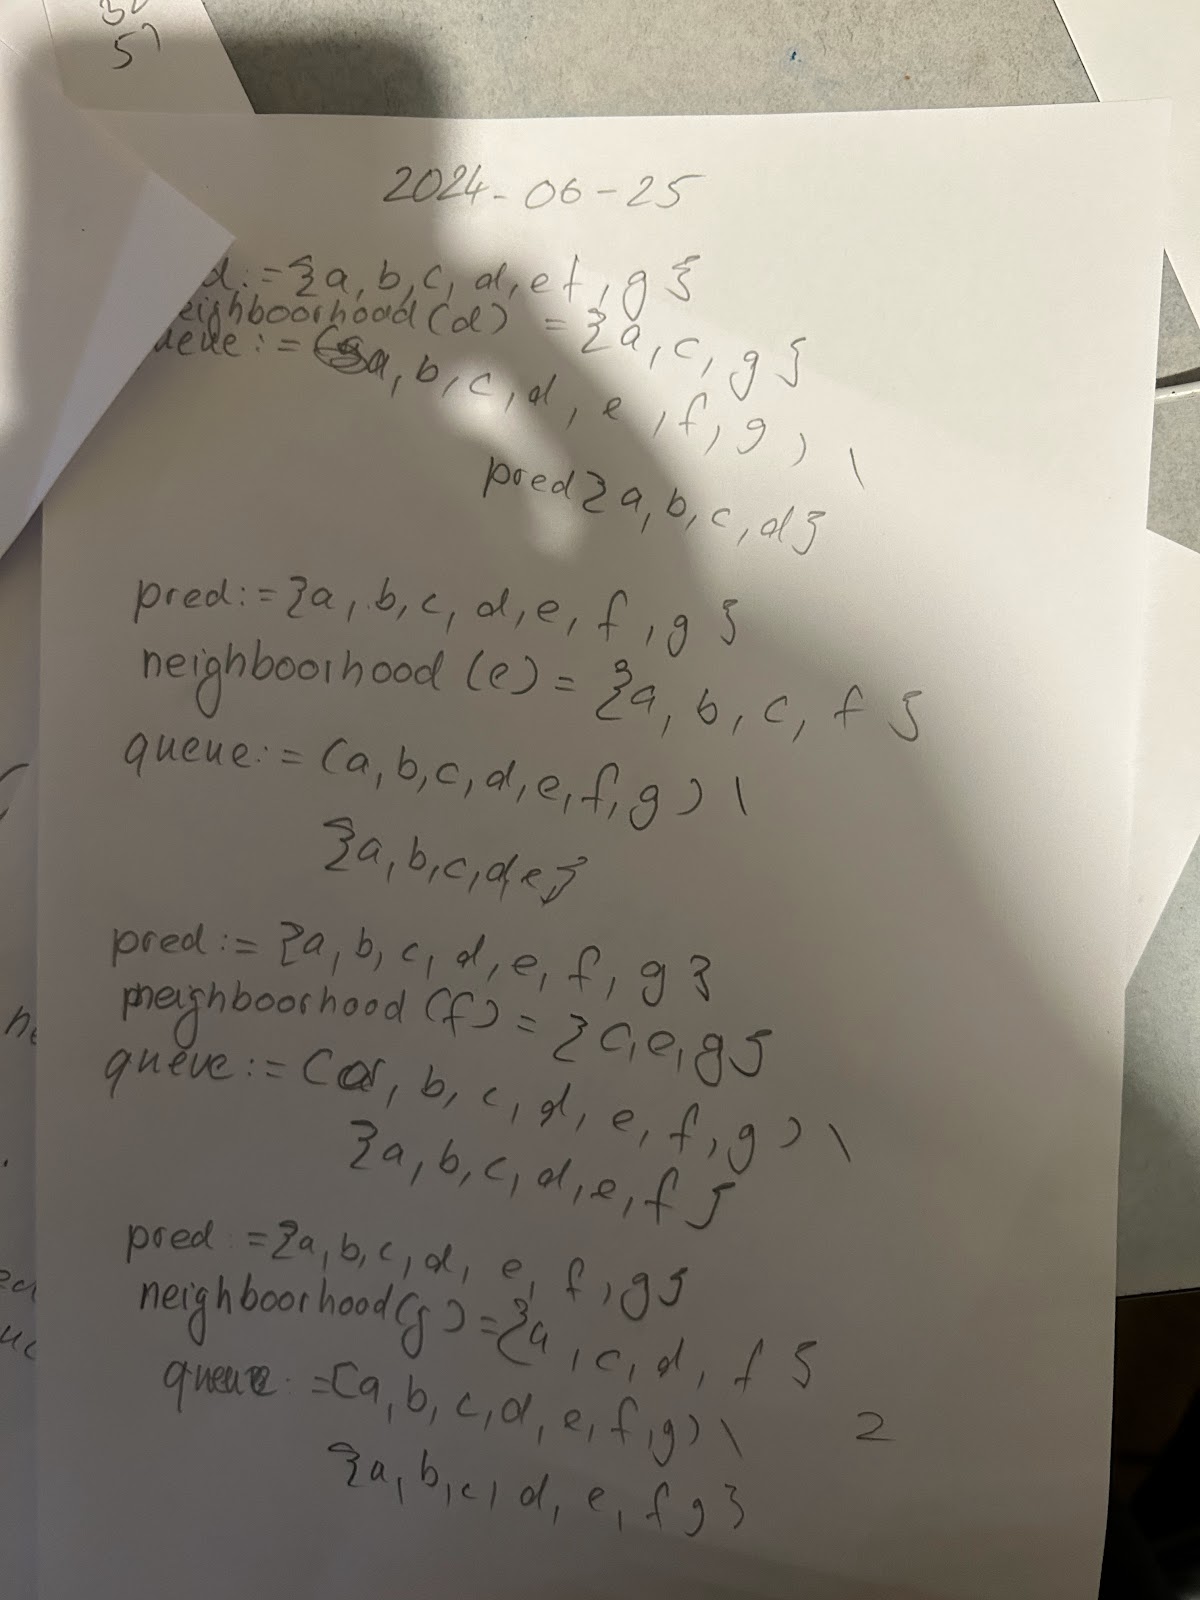 57
2024-06-25
d:={a, b, c, d, e f, g}
eighboorhood(d) = {a, c, g}
ueue:=(a, b, c, d, e, f, g) \
pred{a, b, c, d}
pred:={a, b, c, d, e, f, g}
neighboorhood (e) = {a, b, c, f}
queue:= (a, b, c, d, e, f, g) \
{a, b, c, d e}
pred:= {a, b, c, d, e, f, g}
neighboorhood (f) = {c, e, g}
queue:= (a, b, c, d, e, f, g) \
{a, b, c, d, e, f}
pred := {a, b, c, d, e, f, g}
neighboorhood(g) = {a, c, d, f}
queue:=(a, b, c, d, e, f, g) \
2
{a, b, c, d, e, f g}